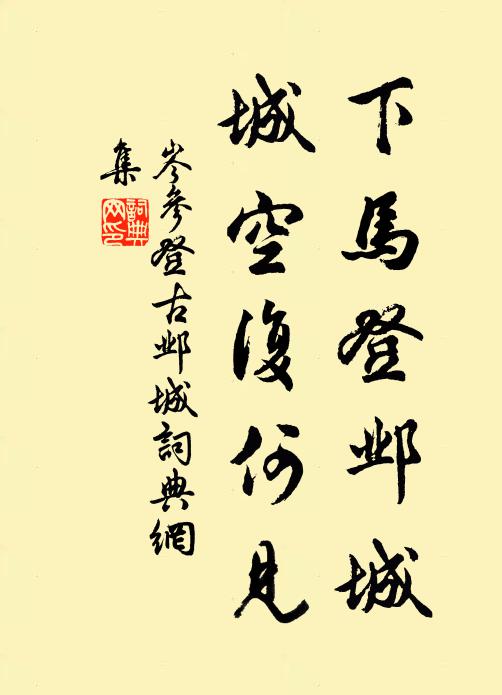 下馬登邺城
城空復何見
岑參登古邺城詞典網
集
詞典網印